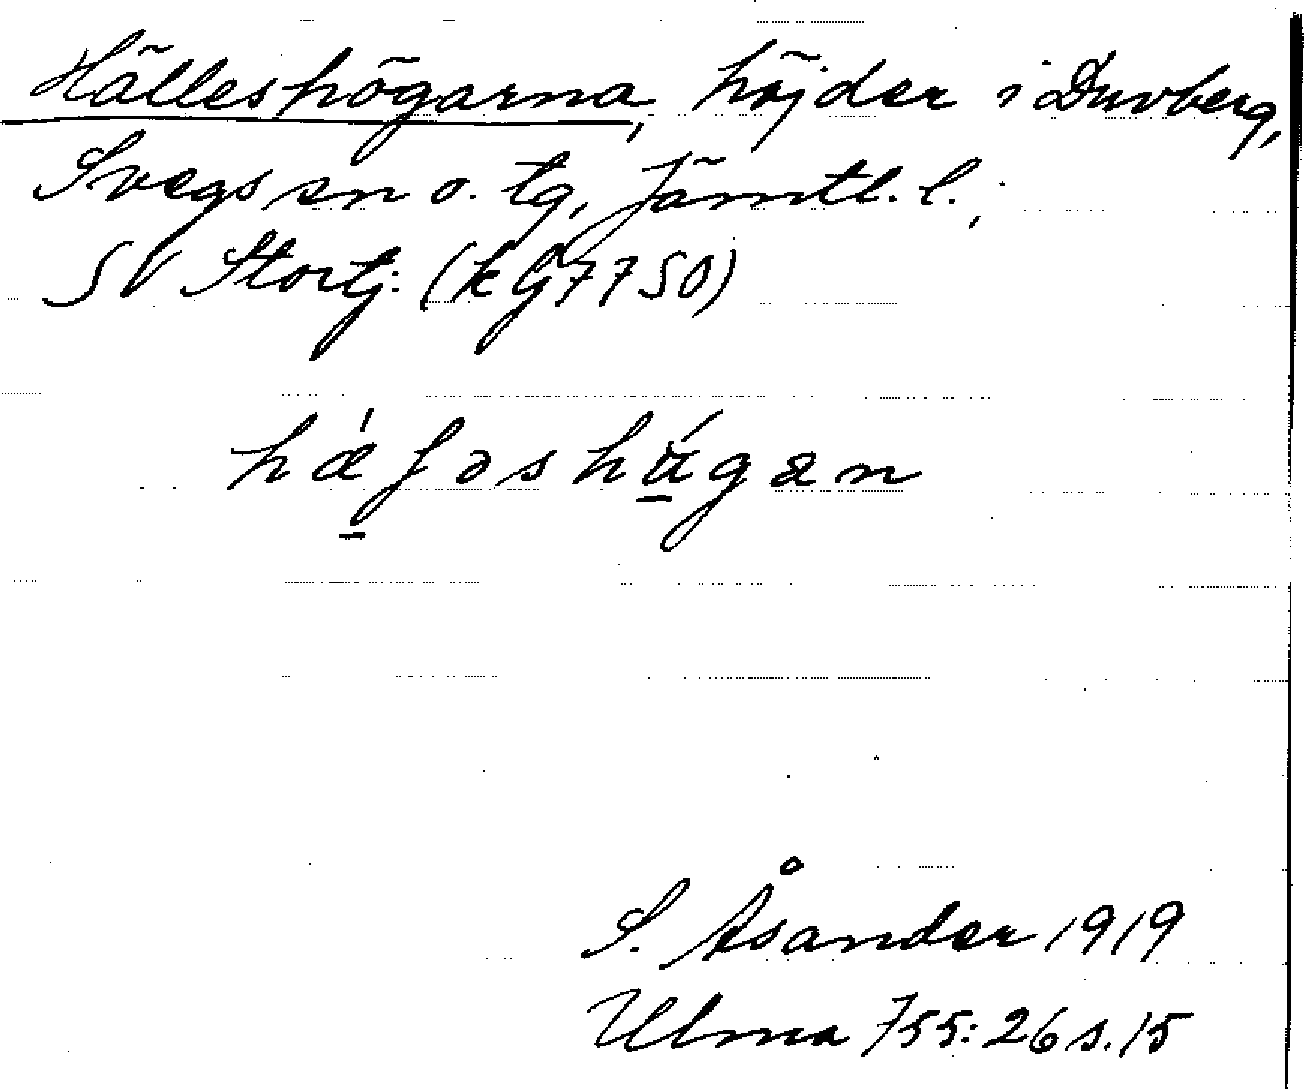 Hälleshögarna, höjder i Duvberg,
Svegs sn o. tg, Jämtl. l.;
SV Stortj: (kG7750)
S. Åsander 1919
Ulma 755:26 s. 15